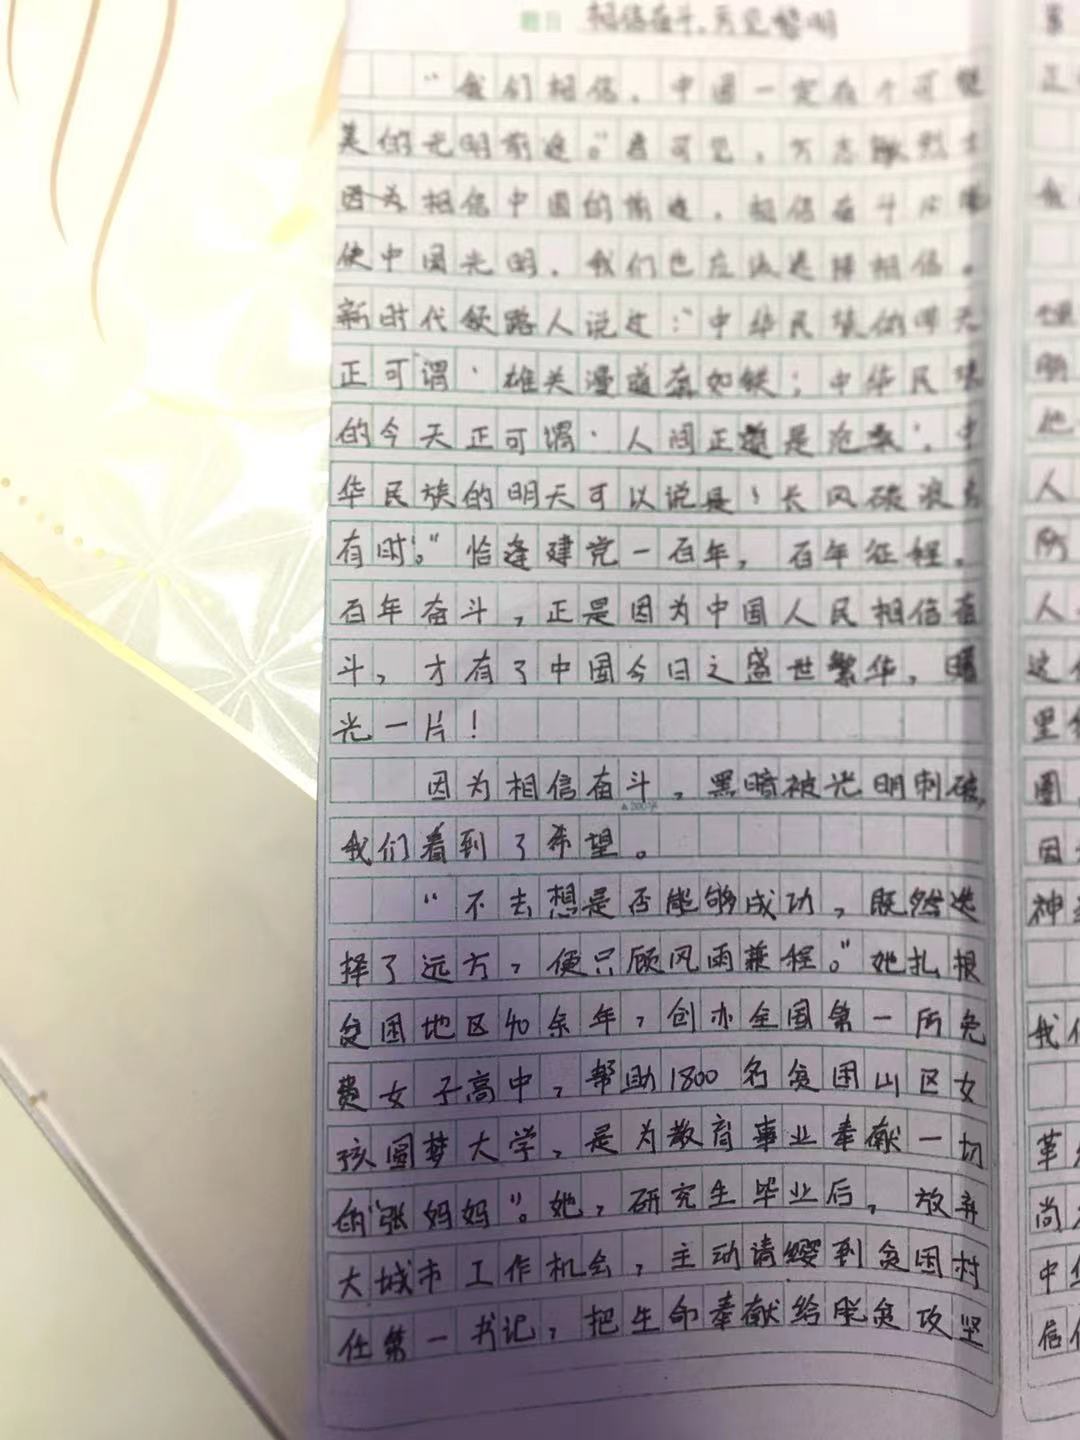 题目 相信奋斗,历见黎明
“我们相信,中国一定有个可赞
美的光明前途。”由可见,方志敏烈士
因为相信中国的前途,相信奋斗
使中国光明,我们也应该选择相信。
新时代领路人说过:“中华民族的昨天
正可谓‘雄关漫道真如铁;中华民族
的今天正可谓‘人间正道是沧桑’,中
华民族的明天可以说是‘长风破浪会
有时’。”恰逢建党一百年,百年征程,
百年奋斗,正是因为中国人民相信奋
斗,才有了中国今日之盛世繁华,曙
光一片!
因为相信奋斗,黑暗被光明刺破,
▲200字
我们看到了希望。
“不去想是否能够成功,既然选
择了远方,便只顾风雨兼程。”她扎根
贫困地区40余年,创办全国第一所免
费女子高中,帮助1800名贫困山区女
孩圆梦大学,是为教育事业奉献一切
的“张妈妈”。她,研究生毕业后,放弃
大城市工作机会,主动请缨到贫困村
任第一书记,把生命奉献给脱贫攻坚
正
我
人
所
人
这
里
圈
因
神
我们
革
尚
中
信